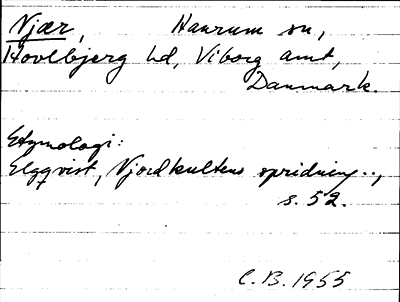 Njær, Hanrum sn,
Hovlbjerg hd, Viborg amt,
Danmark.
Etymologi:
Elgqvist, Njordkultens spridning..,
s. 52.
C.B. 1955